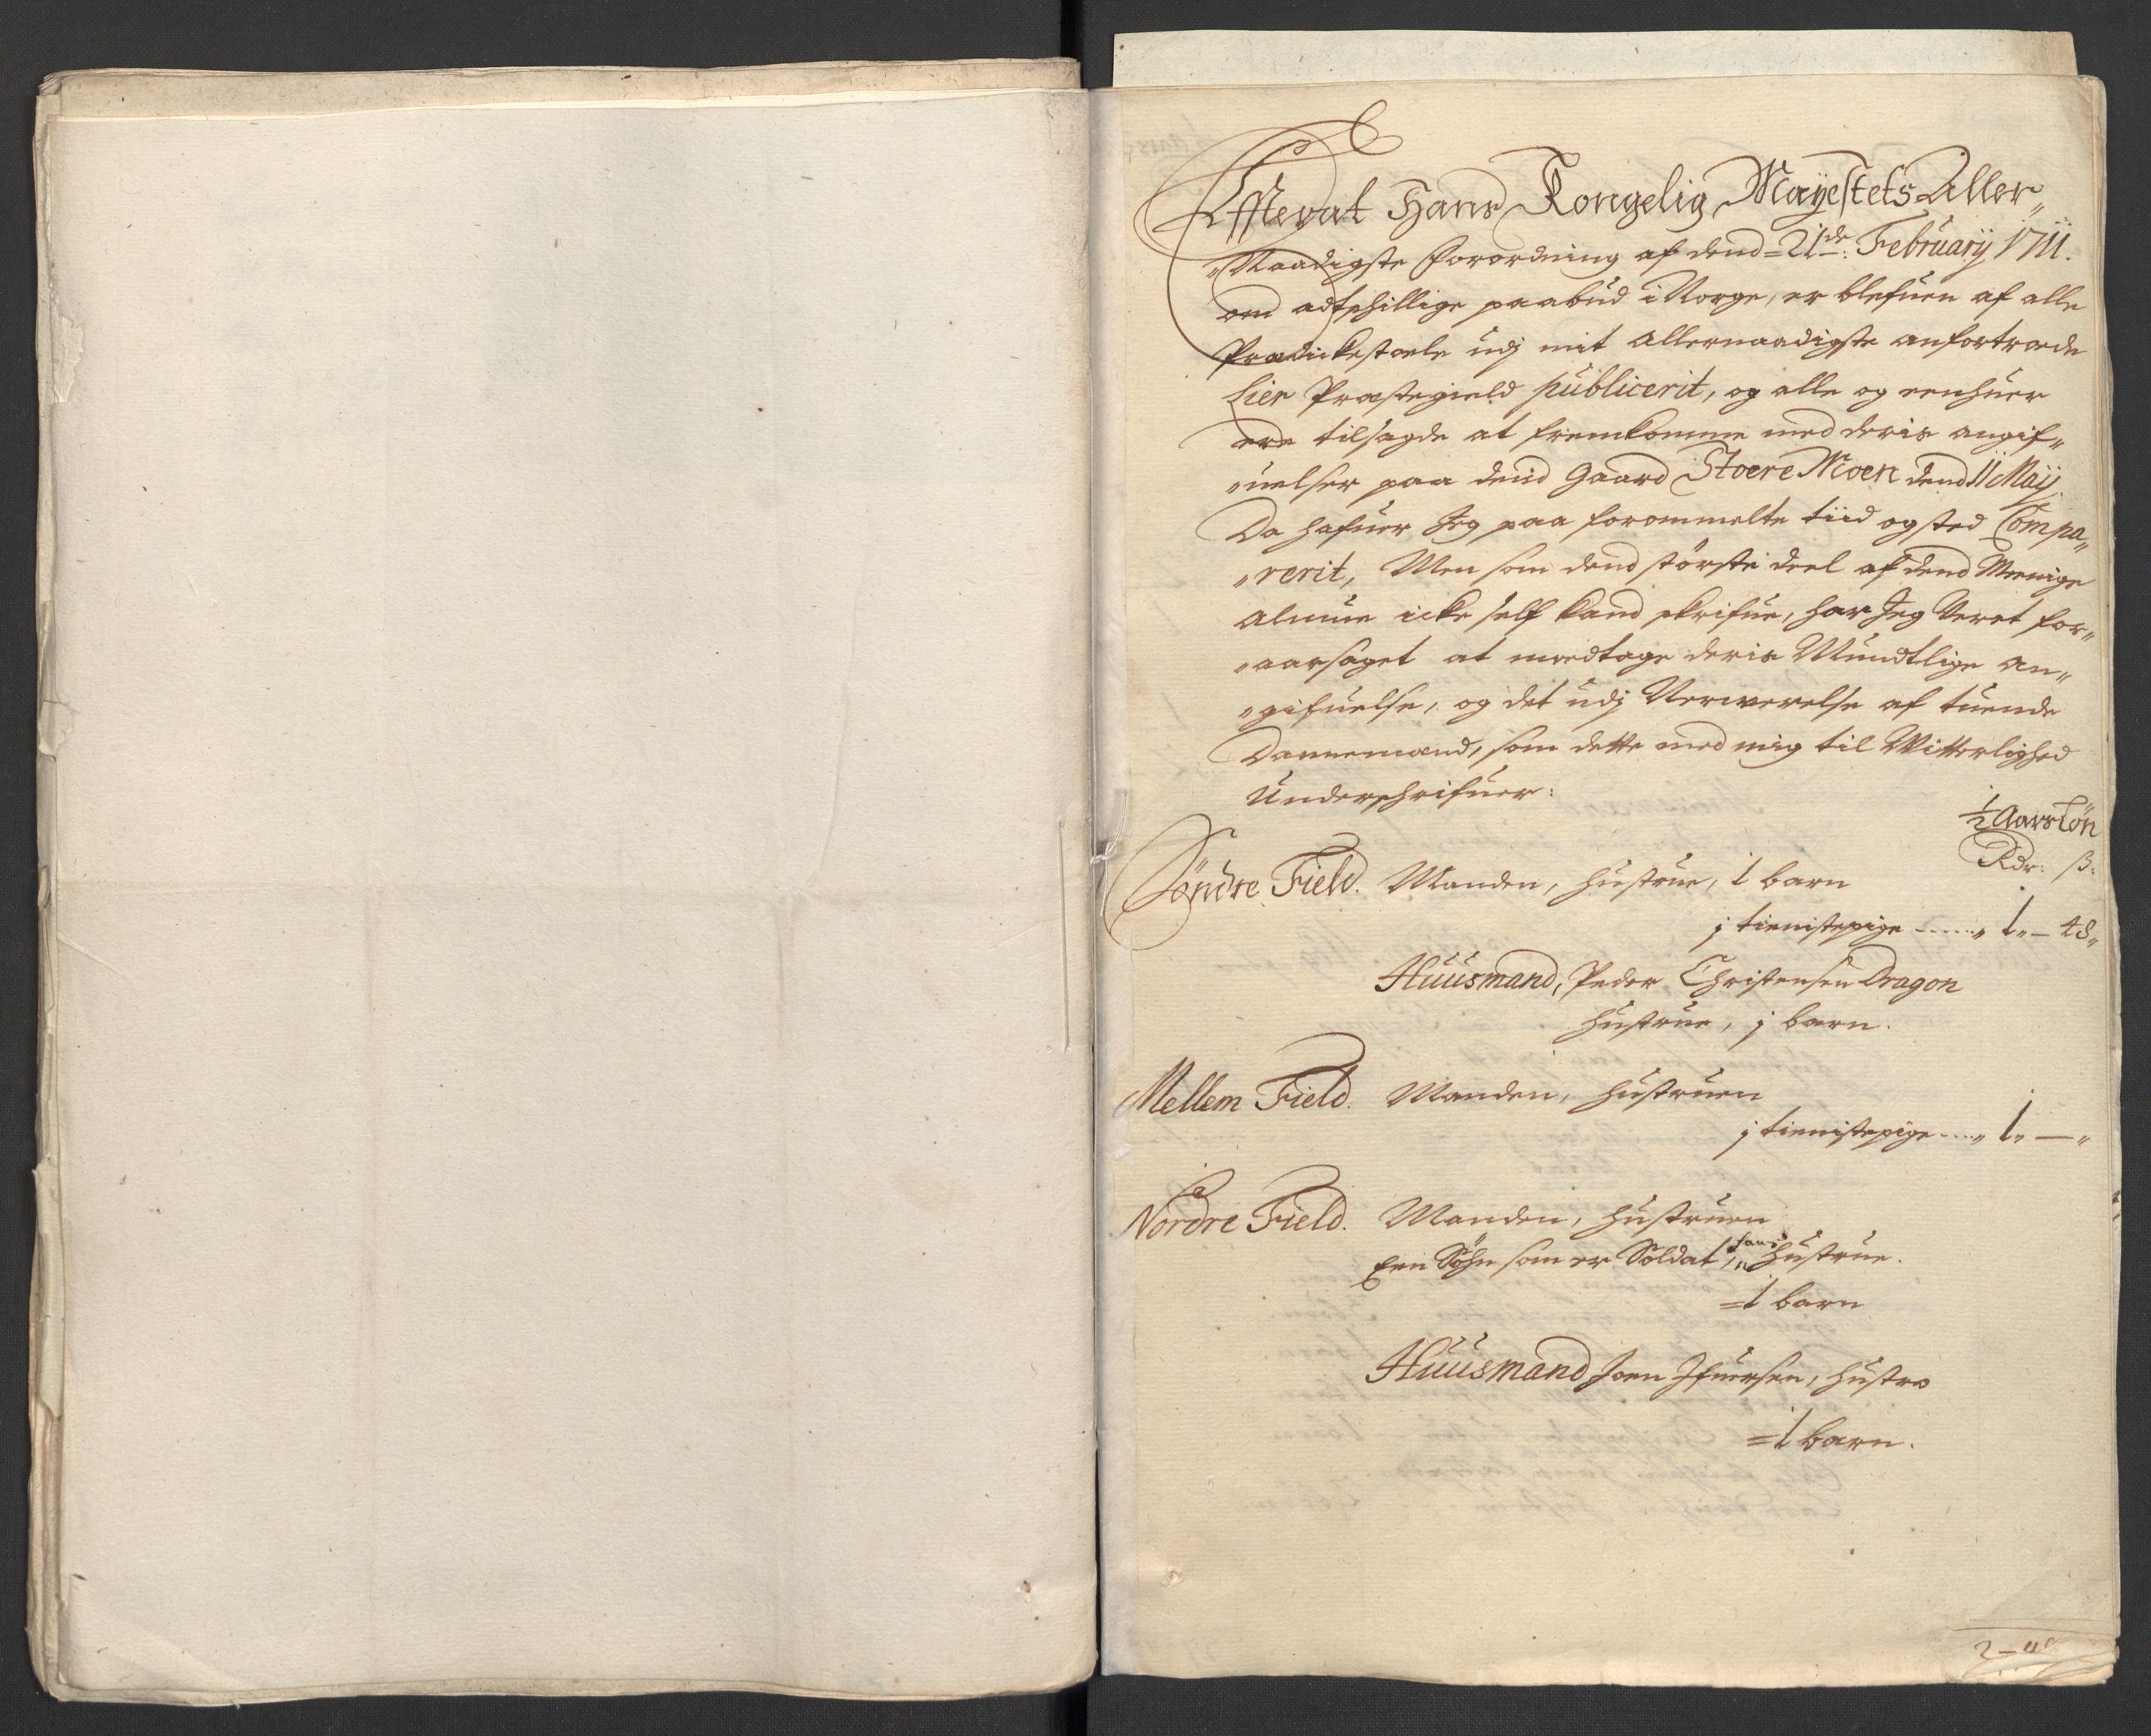 Effterat Hans Kongelig Mayestets Aller„
„Naadigste Forordning af dend 21de: February 1711.
om adtschillige paabud i Norge, er blefuen af alle
Prædickestoele udj mit allernaadigste anfortroede
Lier Præstegield publicerit, og alle og eenhuer
ere tilsagde at fremkomme med deris angif„
„uelser paa dend Gaard Stoere Moen dend 11 May
Da hafuer Jeg paa forommelte tiid og sted Compa„
„rerit, Men som dend störste deel af dend Menige
almue icke self kand skrifue, har Jeg veret for„
„aarsaget at modtage deris Mundtlige an„
„gifuelse, og det udj Nerwerelse af tuende
Dannemænd, som dette med mig til Witterlighed
Underschrifuer:
1/2 Aars Lön
Rdr: ß:
Söndre Field. Manden, Hustrue, 1 barn
j tienistepige ..... „ 1„ – 48„
Huusmand, Peder Christensen Dragon
Hustrue, j barn.
Mellem Field. Manden, Hustruen
j tienistepige .... „ 1„ — „
Nordre Field. Manden, Hustruen
Een Söhn som er Soldat, hans Hustrue.
=1 barn
Huusmand Joen Ifuersen, Hustro
=1 barn.
2 – 48